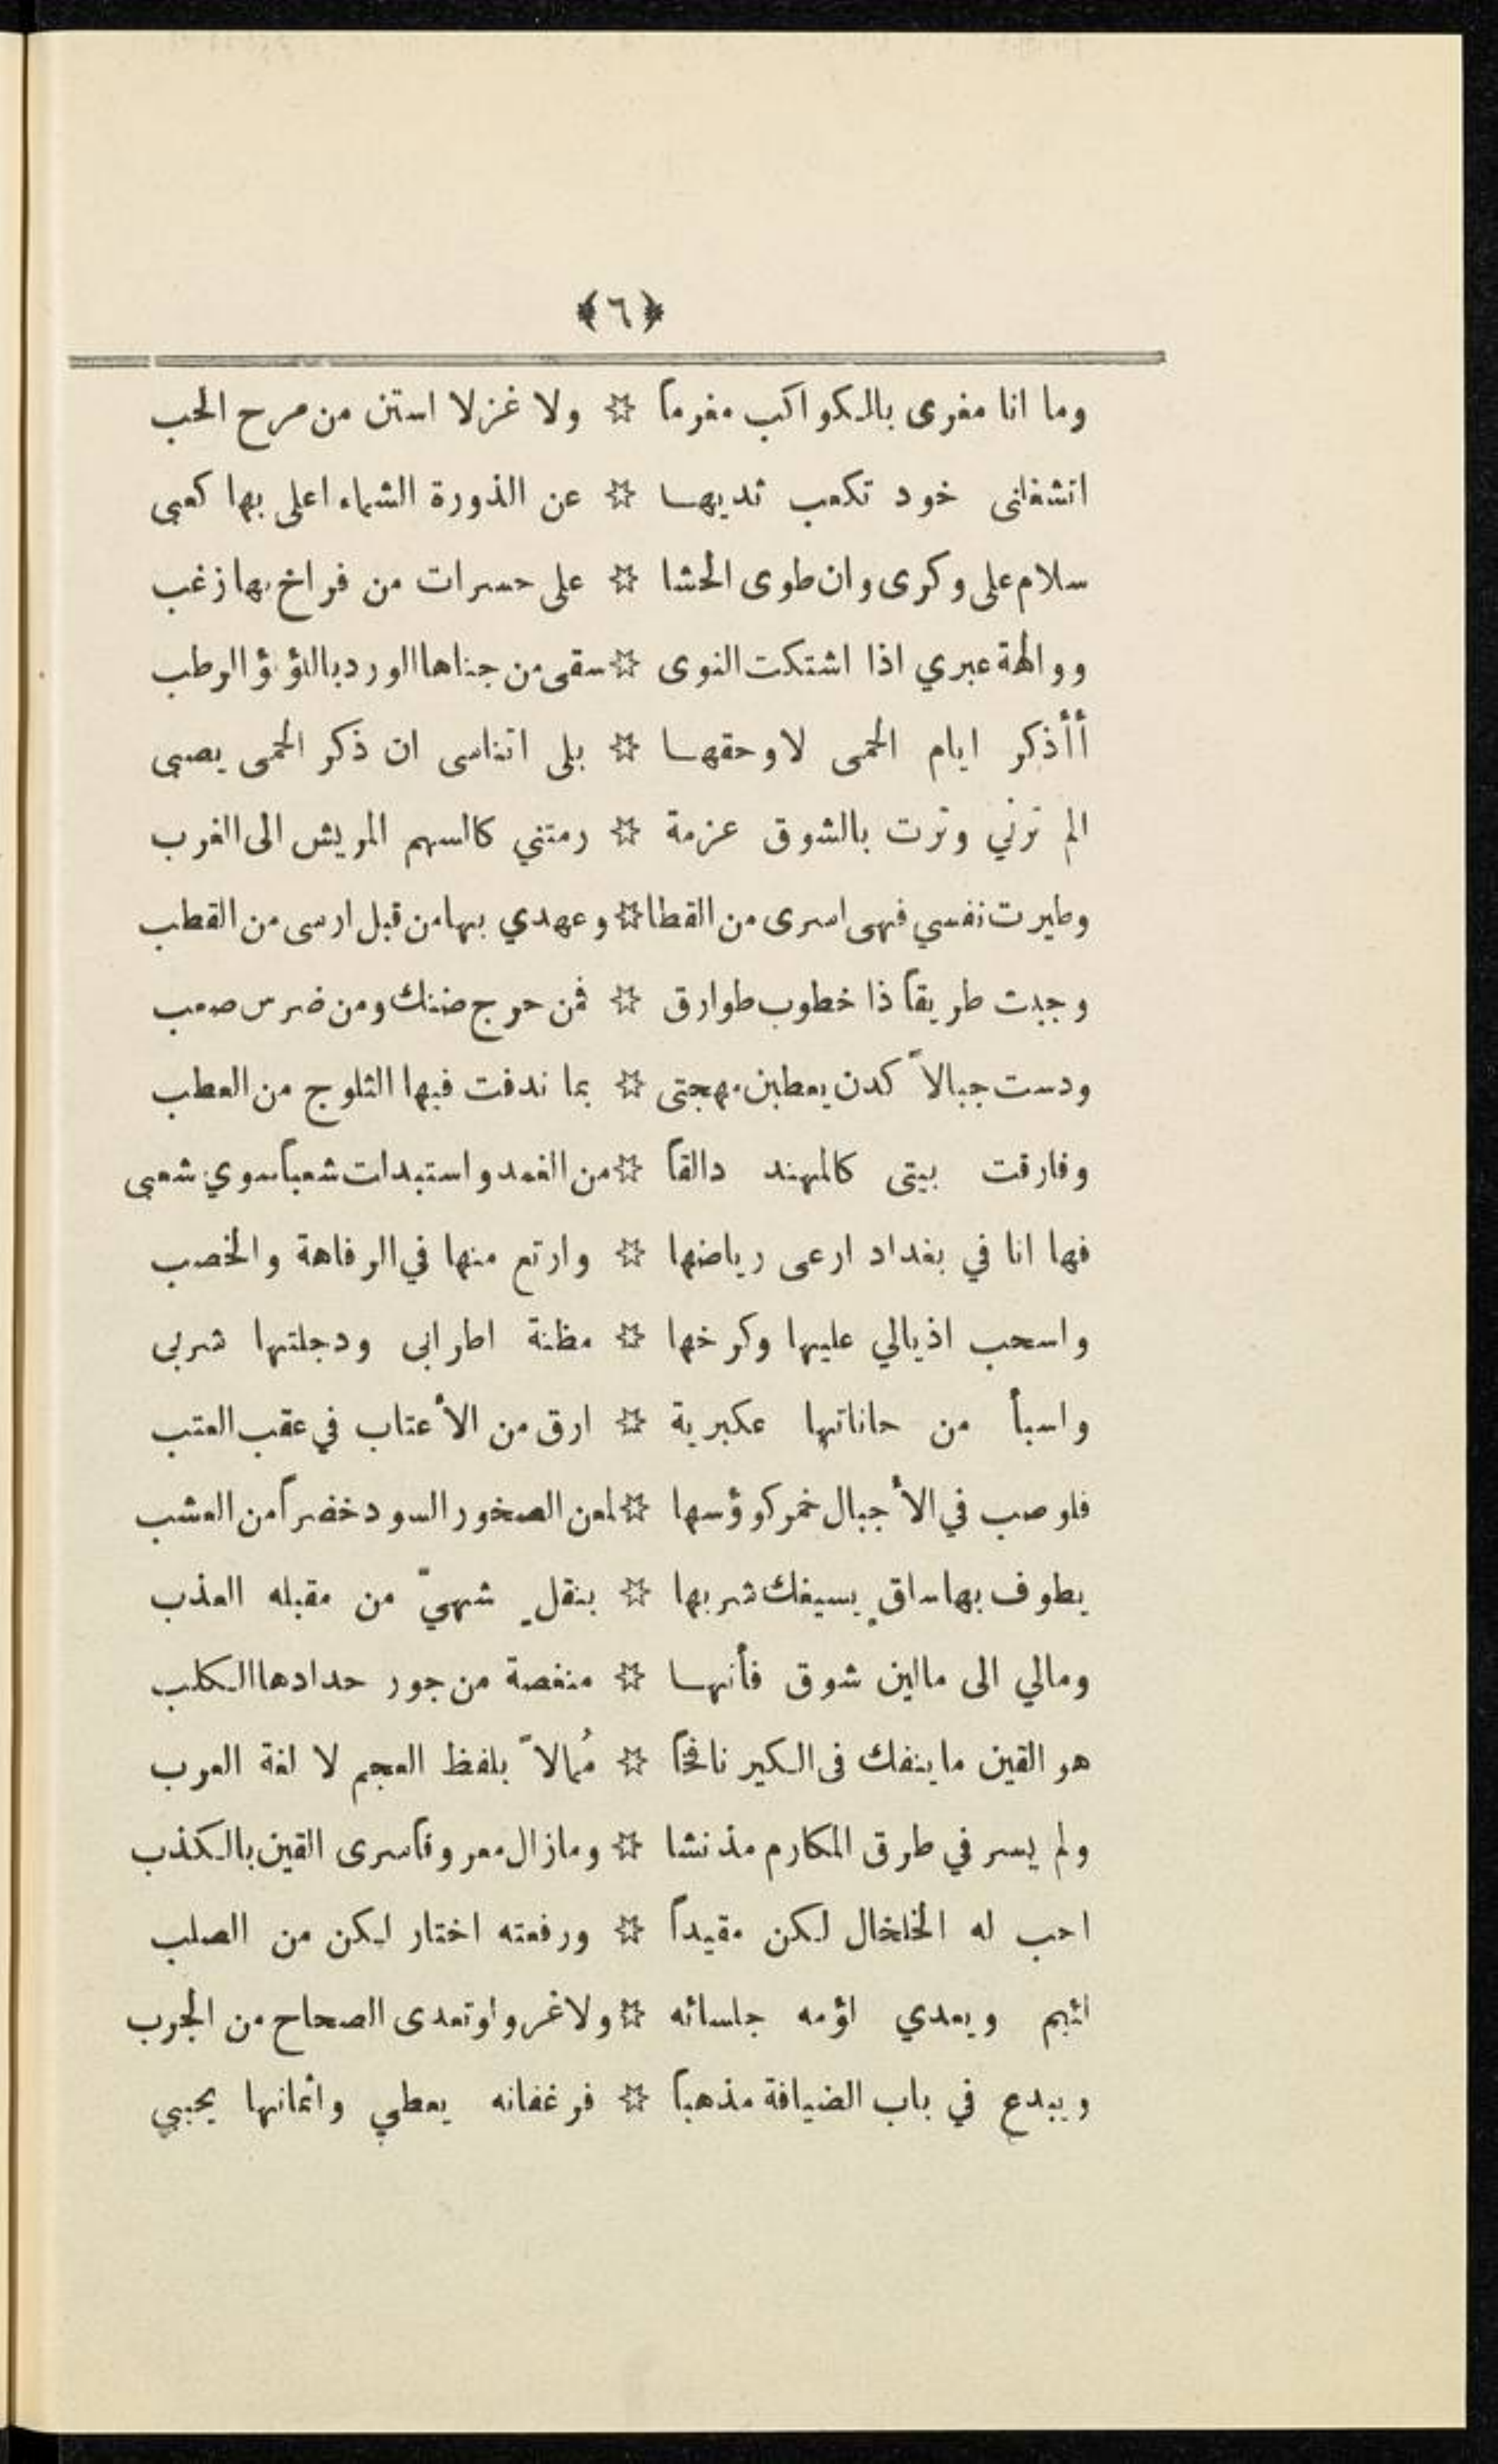 ﴿٦﴾
وما انا مغرى بالكواكب مغرماً ☆ ولا غزلا استن من مرح الحب
اتشغلنى خود تكعب ثديها ☆ عن الذورة الشماء اعلى بها كعبى
سلام على وكرى وان طوى الحشا ☆ على حسرات من فراخ بها زغب
ووالهة عبري اذا اشتكت النوى ☆ سقى من جناها الورد باللؤلؤ الرطب
أأذكر ايام الحمى لا وحقها ☆ بلى اتناسى ان ذكر الحمى يصبى
الم ترني وترت بالشوق عزمة ☆ رمتني كالسهم المريش الى الغرب
وطيرت نفسي فهى اسرى من القطا ☆ وعهدي بها من قبل ارسى من القطب
وجبت طريقاً ذا خطوب طوارق ☆ فمن حرج ضنك ومن ضرس صعب
ودست جبالاً كدن يعطبن مهجتى ☆ بما ندفت فيها الثلوج من العطب
وفارقت بيتى كالمهند دالقاً ☆ من الغمد واستبدلت شعباً سوي شعبى
فها انا في بغداد ارعى رياضها ☆ وارتع منها في الرفاهة والخصب
واسحب اذيالي عليها وكرخها ☆ مظنة اطرابى ودجلتها شربى
واسبأ من حاناتها عكبرية ☆ ارق من الأعتاب في عقب العتب
فلو صب في الأجبال خمر كوؤسها ☆ لمعن الصخور السود خضراً من العشب
يطوف بها ساقٍ يسيغك شربها ☆ بنقلٍ شهيّ من مقبله العذب
ومالي الى مالين شوق فأنها ☆ منغصة من جور حدادها الكلب
هو القين ما ينفك فى الكير نافخاً ☆ مُمالاً بلفظ العجم لا لغة العرب
ولم يسر في طرق المكارم مذ نشا ☆ وما زال معروفاً سرى القين بالكذب
احب له الخلخال لكن مقيداً ☆ ورفعته اختار لكن من الصلب
لئيم ويعدي لؤمه جلسائه ☆ ولا غرو لو تعدى الصحاح من الجرب
ويبدع في باب الضيافة مذهباً ☆ فرغفانه يعطي واثمانها يجبي